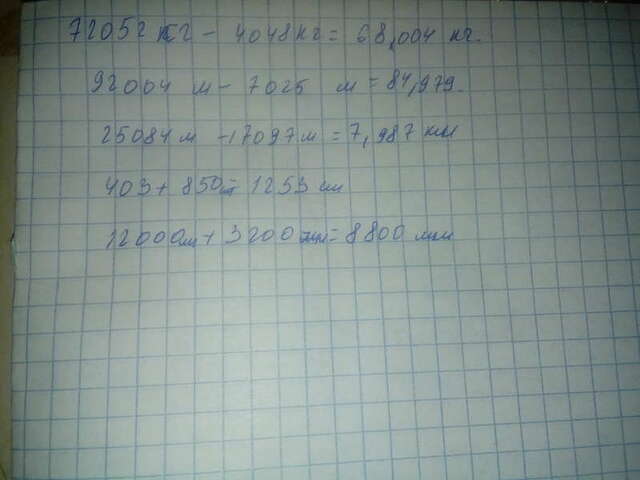 72052 кг - 4048кг = 68,004 кг.
92004 м - 7025 м = 84,979.
25084 м - 17097 м = 7,987 км
403 + 850 = 1253 см
12000 + 3200 мм = 8800 мм